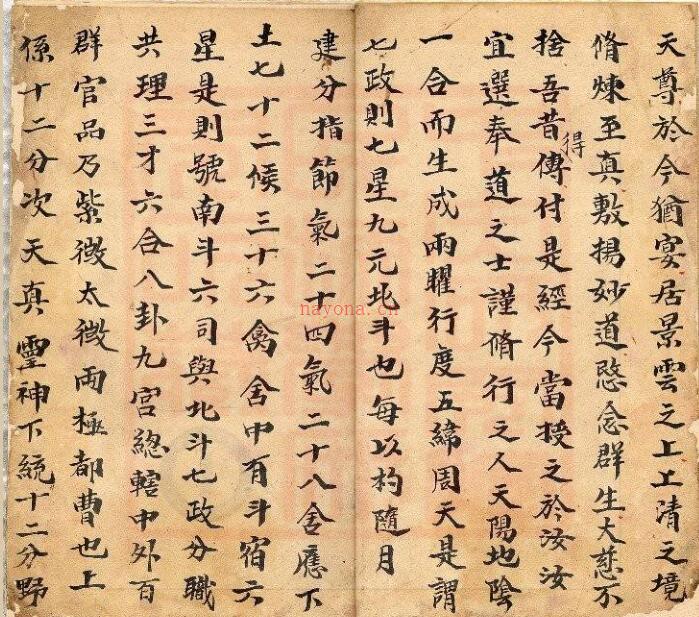 天尊於今猶宴居景雲之上上清之境
脩煉至真敷揚妙道愍念群生大慈不
捨吾昔得傳付是經今當授之於汝汝
宜選奉道之士謹脩行之人天陽地陰
一合而生成兩曜行度五緯周天是謂
七政則七星九元北斗也每以杓隨月
建分指節氣二十四氣二十八舍應下
土七十二候三十六禽舍中有斗宿六
星是則號南斗六司與北斗七政分職
共理三才六合八卦九宮緫轄中外百
群官品乃紫微太微兩極都曹也上
係十二分次天真靈神下統十二分野
nayona.cn